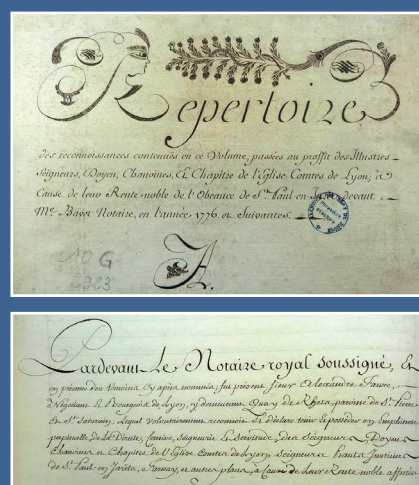 Repertoire
des reconnoissances contenues en ce Volume, passées au proffit des Illustres
Seigneurs, Doyen, Chanoines, & Chapitre de l'Eglise Comtes de Lyon, à
Cause de leur Rente noble de l'Obeance de St. Paul en devant
Me. Notaire, en l'année 1776. et Suivantes.
A.
10 G
Pardevant Le Notaire royal soussigné, &
en présence des témoins cy après nommés, fut présent sieur Alexandre Favre,
Négotiant & Bourgeois de Lyon, y demeurant Quay de paroisse de St. Pierre
et St. Saturnin, Lequel volontairement reconnoit Et déclare tenir & posséder en Emphiteose
perpetuelle de la Directe, Seigneurie & Servitude, des Seigneurs Doyen
Chanoines et Chapitre de l'Eglise Comtes de Lyon, Seigneurs hauts Justiciers
de St. Paul en Jarêts, et autres places, à Cause de Leur Rente noble